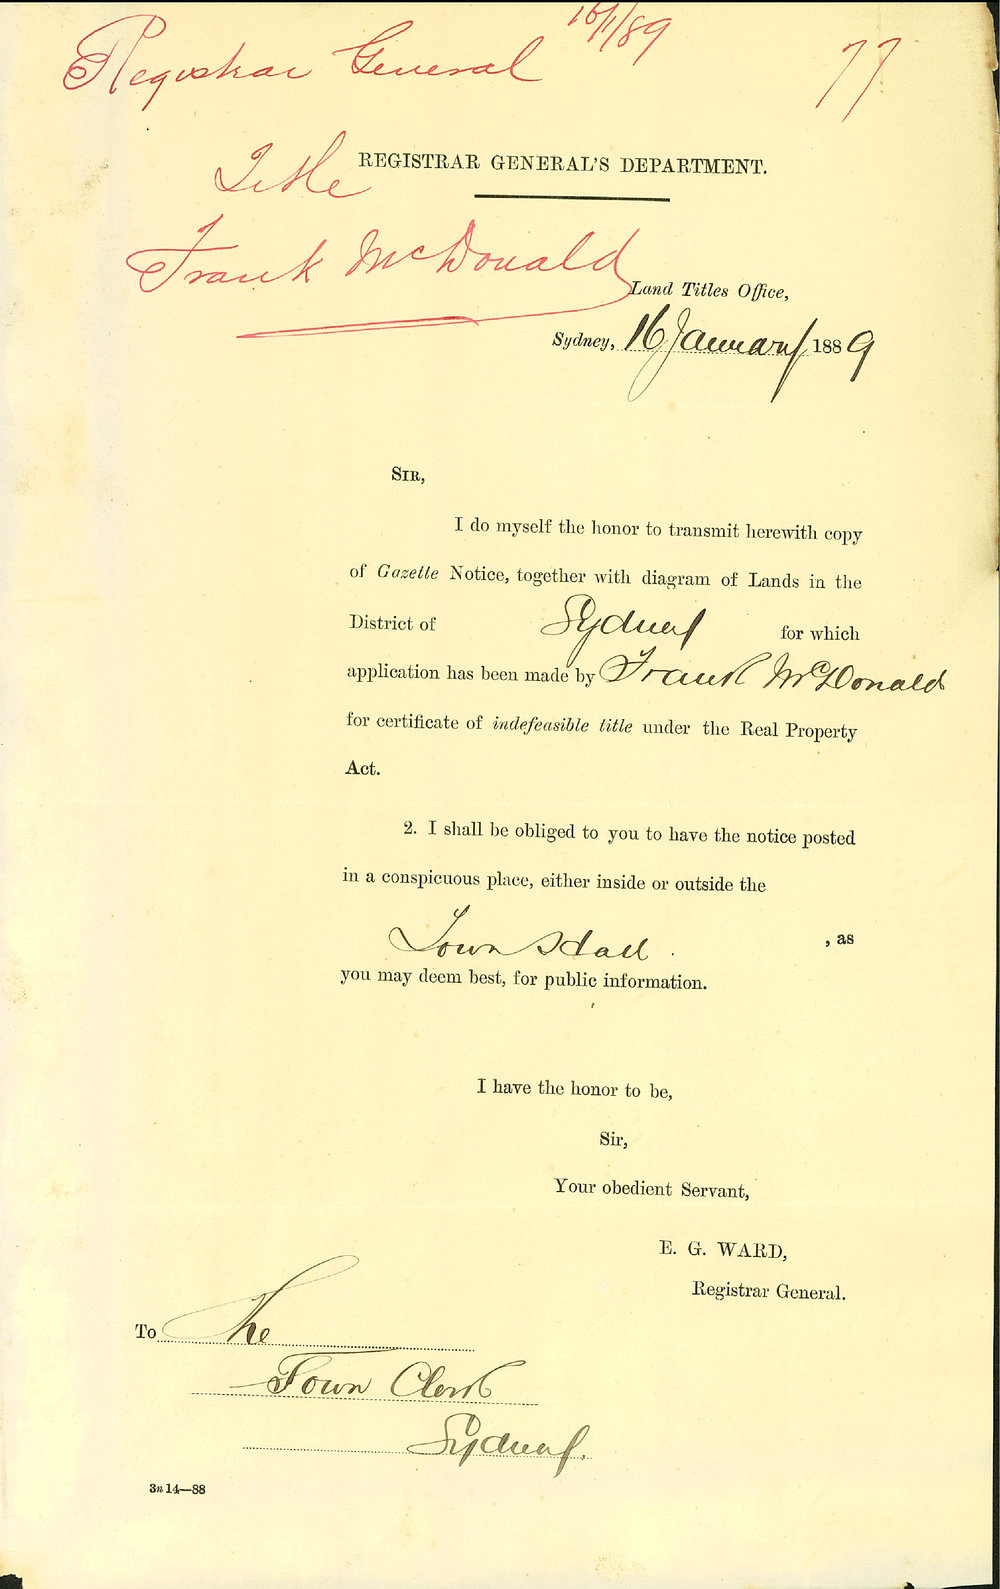 16/1/89
Registrar General
77
Title
REGISTRAR GENERAL'S DEPARTMENT.
Frank McDonald
Land Titles Office,
Sydney, 16 January 1889
SIR,
I do myself the honor to transmit herewith copy
of Gazette Notice, together with diagram of Lands in the
District of Sydney for which
application has been made by Frank McDonald
for certificate of indefeasible title under the Real Property
Act.
2. I shall be obliged to you to have the notice posted
in a conspicuous place, either inside or outside the
Town Hall , as
you may deem best, for public information.
I have the honor to be,
Sir,
Your obedient Servant,
E. G. WARD,
Registrar General.
To The
Town Clerk
Sydney.
3n 14—88